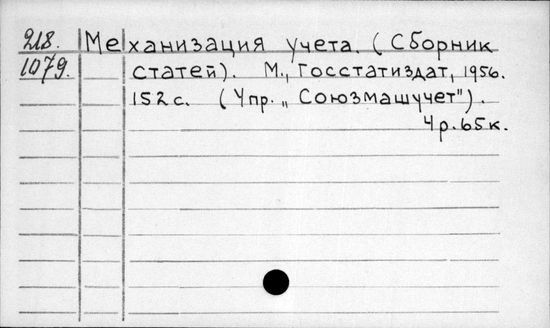 218. Механизация учета. (Сборник
1079. статей). М., Госстатиздат, 1956.
152 с. (Упр. „Союзмашучет").
4 р. 65 к.